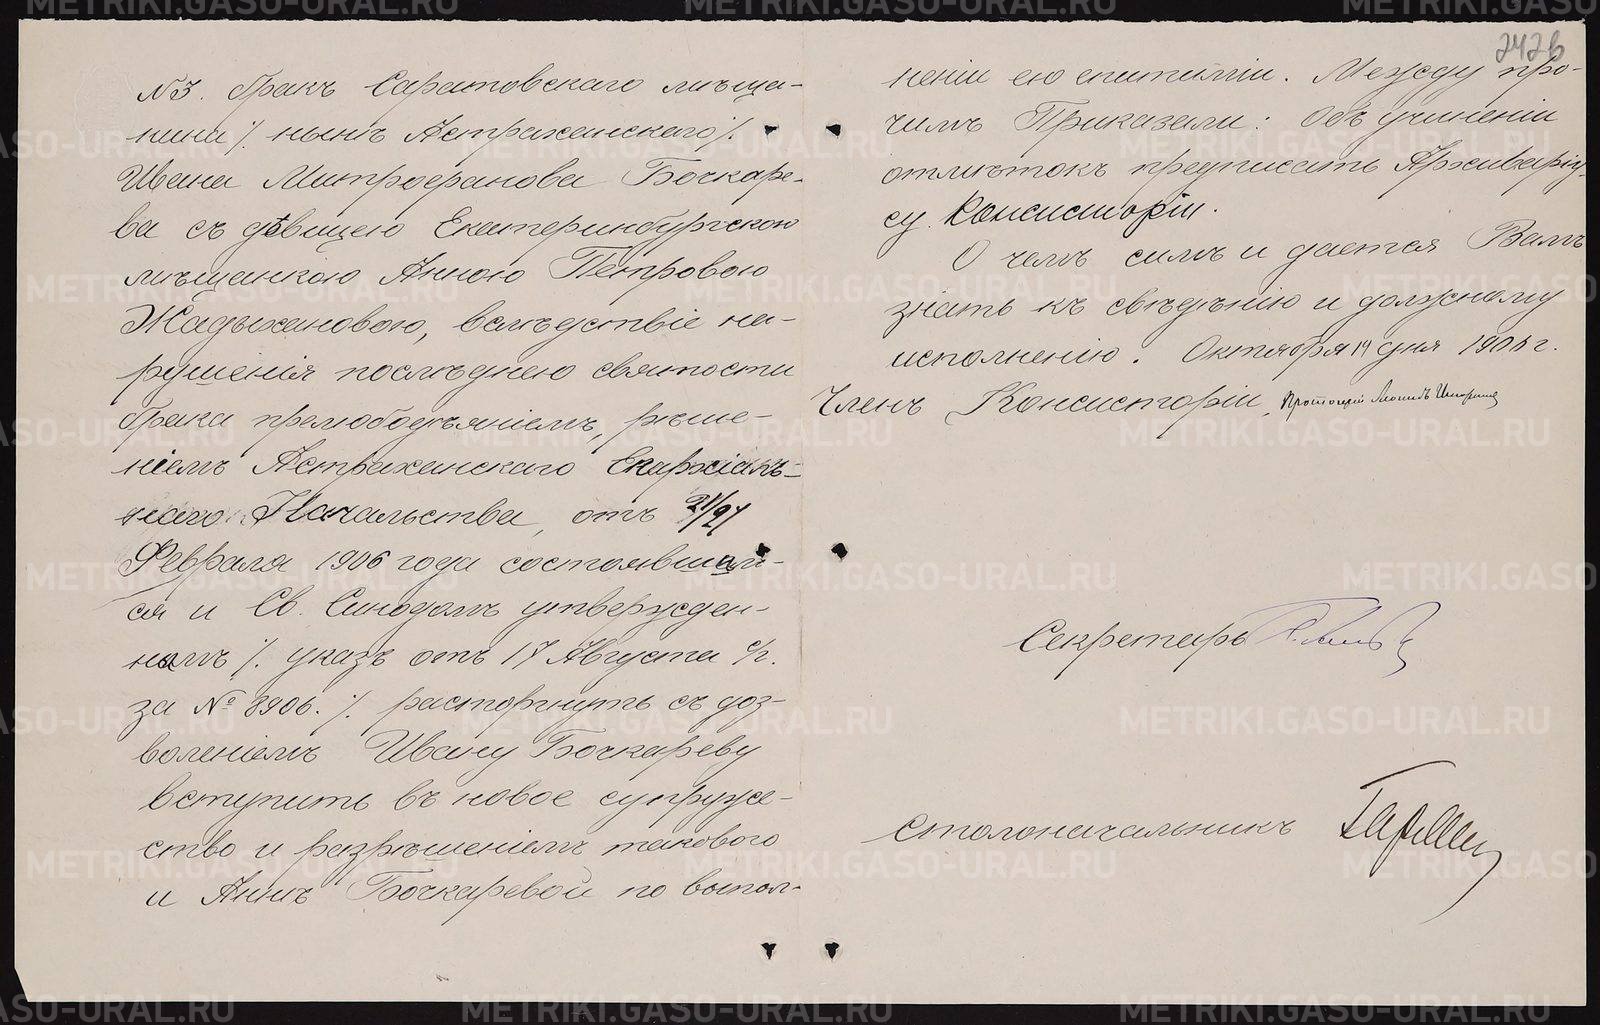 242б
№3. бракъ Саратовскаго мѣща-
нина /. нынѣ Астраханскаго /.
Ивана Митрофанова Бочкаре-
ва съ дѣвицею Екатеринбургскою
мѣщанкою Анною Петровою
Жадыхановою, вслѣдствіе на-
рушенія послѣднею святости
брака прелюбодѣяніемъ, рѣше-
ніемъ Астраханскаго Епархіаль-
наго Начальства, отъ 21/27
Февраля 1906 года состоявшим-
ся и Св. Синодомъ утвержден-
нымъ /. указъ отъ 17 Августа с/г.
за № 8906. /. расторгнутъ съ доз-
воленіемъ Ивану Бочкареву
вступить въ новое супруже-
ство и разрѣшеніемъ такового
и Аннѣ Бочкаревой по выпол-
неніи ею епитиміи. Между про-
чимъ Приказали: Объ учиненіи
отмѣтокъ предписать Архиваріу-
су Консисторіи.
О чемъ симъ и дается Вамъ
знать къ свѣдѣнію и должному
исполненію. Октября 19 дня 1906 г.
Членъ Консисторіи, Протоіерей
Секретарь
Столоначальникъ
METRIKI.GASO-URAL.RU